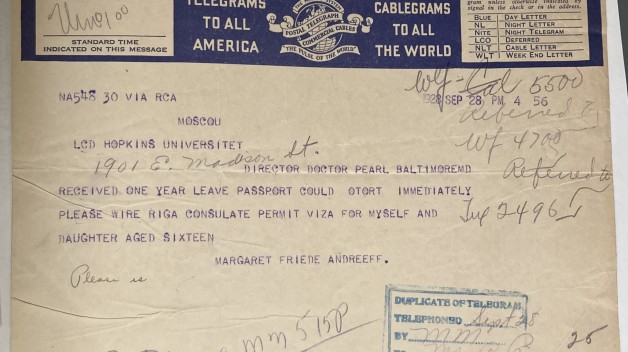 STANDARD TIME
INDICATED ON THIS MESSAGE
TELEGRAMS
TO ALL
AMERICA
POSTAL TELEGRAPH
COMMERCIAL CABLES
CABLEGRAMS
TO ALL
THE WORLD
unless otherwise indicated by
signed in the check or in the address.
BLUE DAY LETTER
NL NIGHT LETTER
NITE NIGHT TELEGRAM
LCO DEFERRED
NLT CABLE LETTER
WLT WEEK END LETTER
Cal 5500
1928 SEP 28 PM 4 56
Referred to
WF 4700
Referred to
Tup 2496
NA548 30 VIA RCA
MOSCOU
LCD HOPKINS UNIVERSITET
1901 E. Madison St.
DIRECTOR DOCTOR PEARL BALTIMOREMD
RECEIVED ONE YEAR LEAVE PASSPORT COULD OTORT IMMEDIATELY
PLEASE WIRE RIGA CONSULATE PERMIT VIZA FOR MYSELF AND
DAUGHTER AGED SIXTEEN
MARGARET FRIEDE ANDREEFF.
Please is
MM 515P
DUPLICATE OF TELEGRAM
TELEPHONED Sept 28
BY MM
25